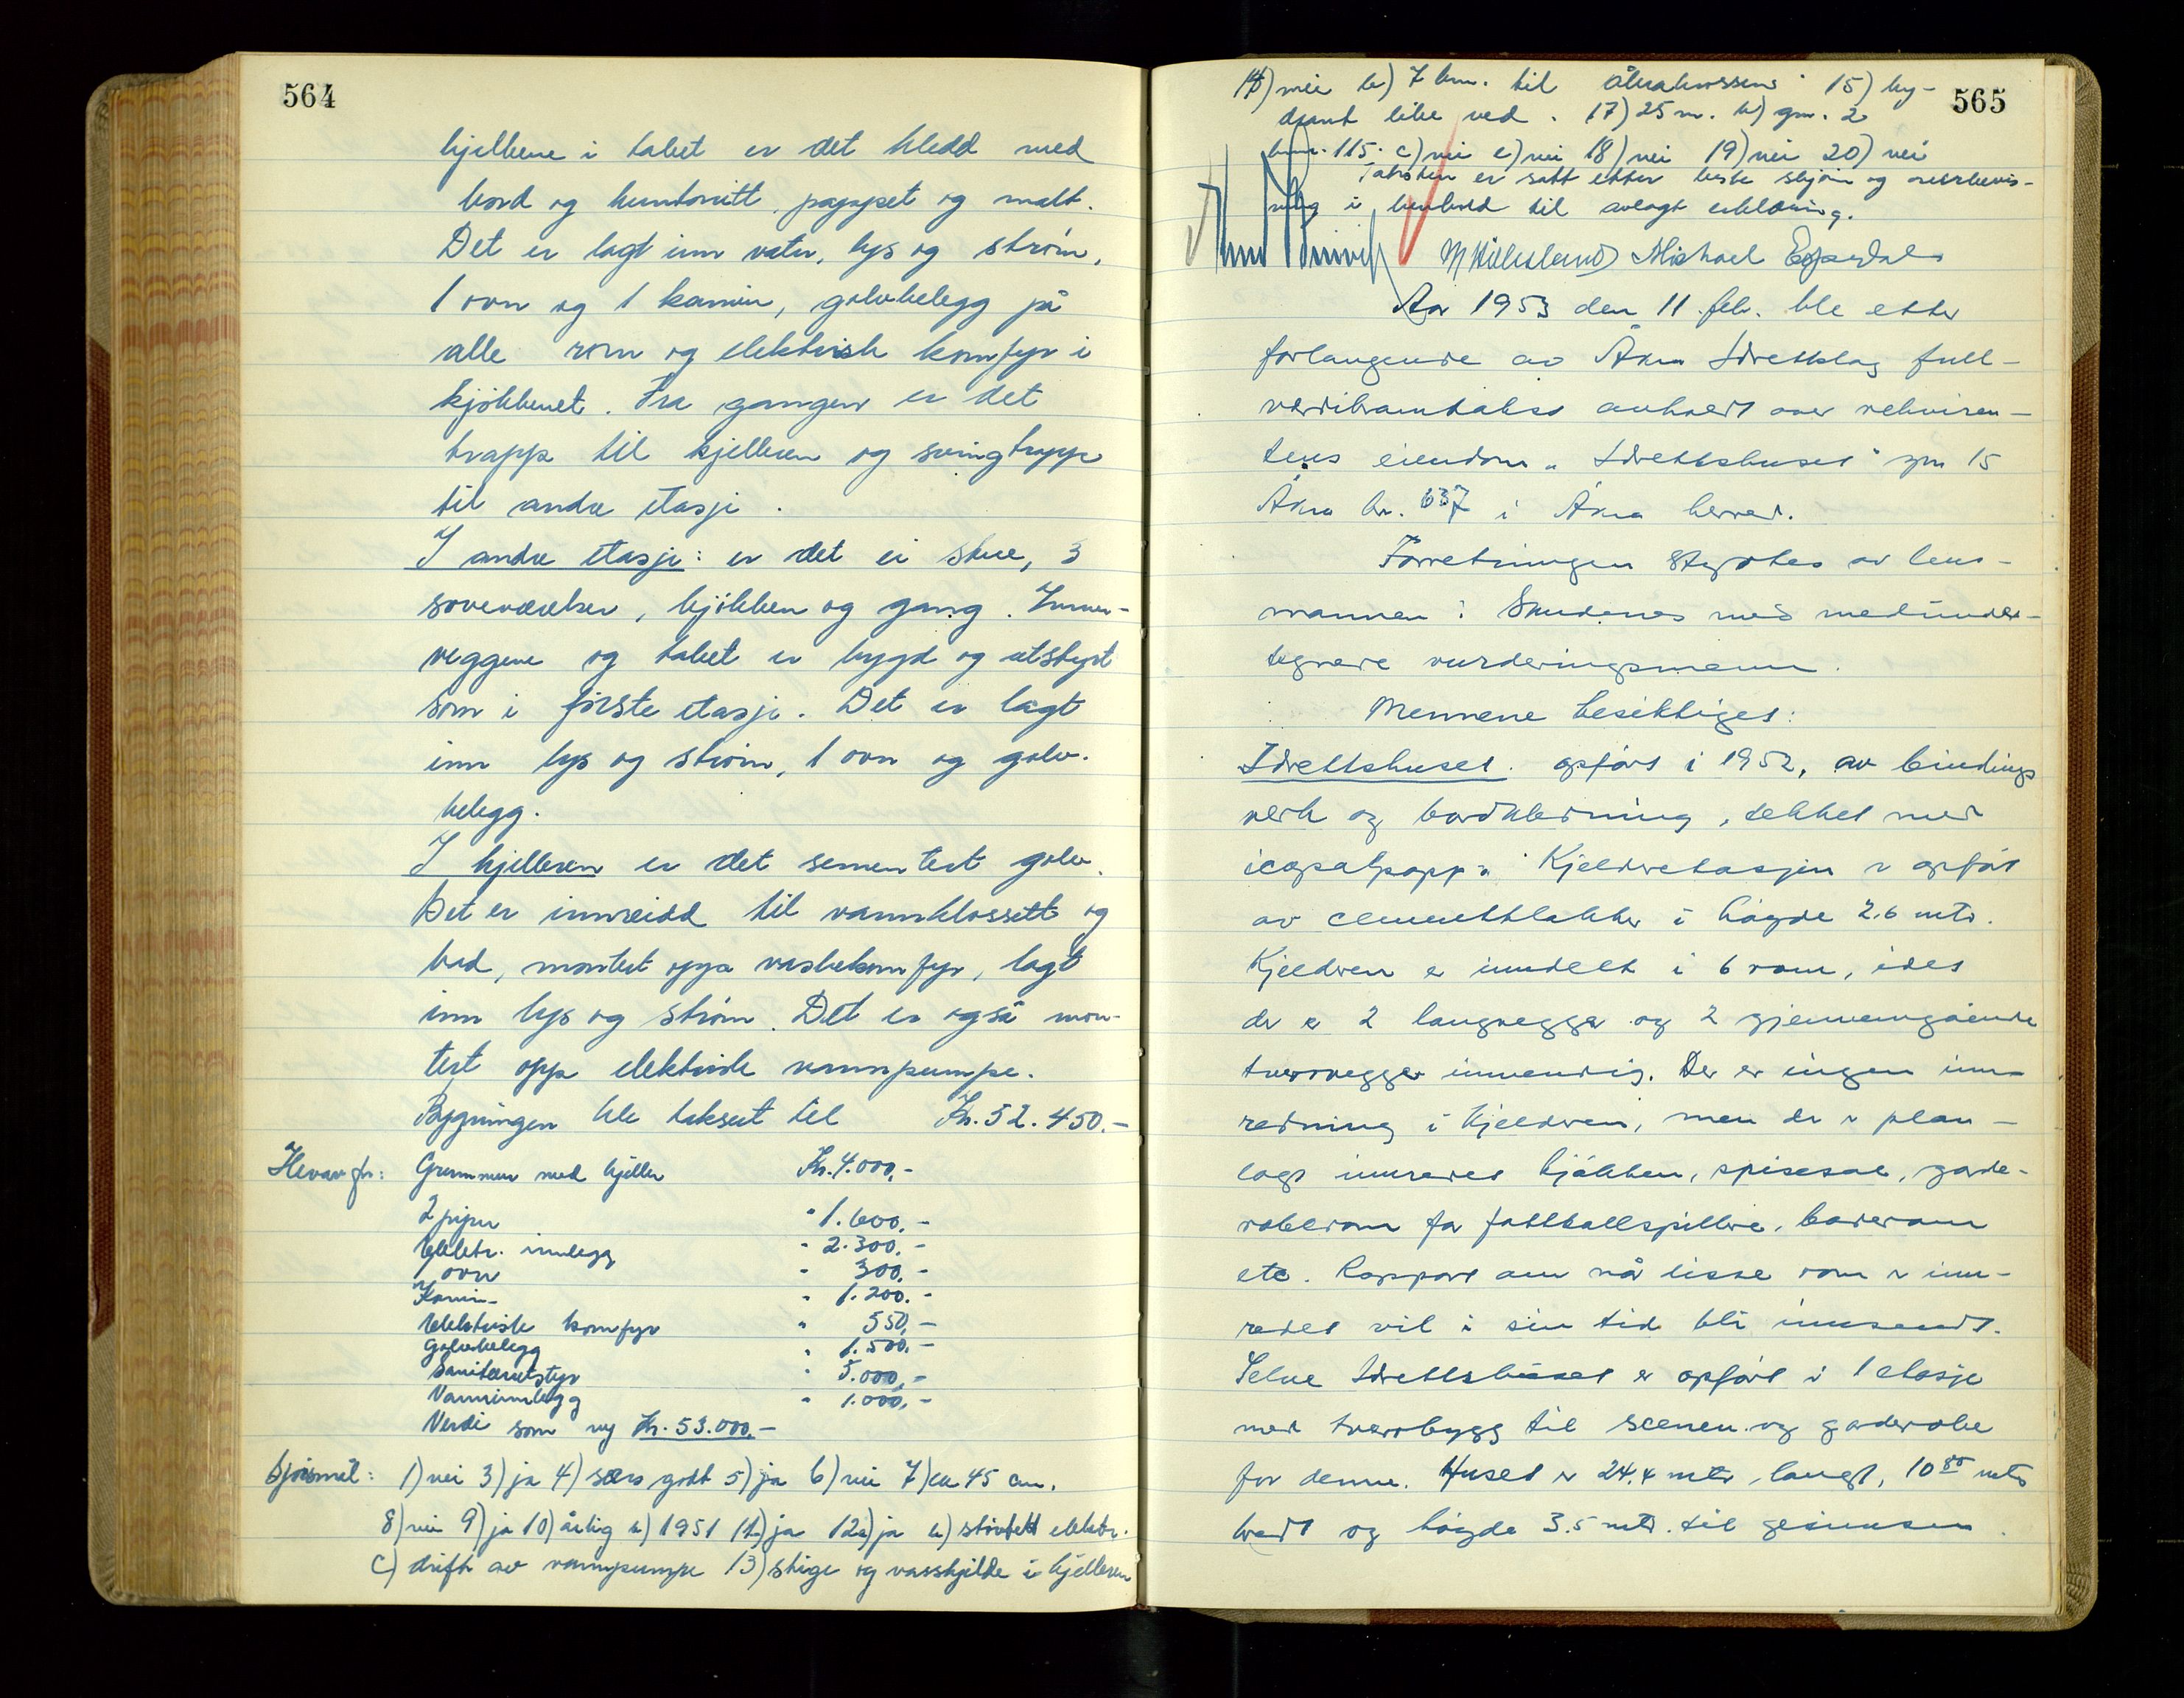 564
bjelkene i taket er det kledd med
bord og huntonitt, pappet og malt.
Det er lagt inn vatn, lys og strøm,
1 ovn og 1 kamin, golvbelegg på
alle rom og elektrisk komfyr i
kjøkkenet. Fra gangen er det
trapp til kjelleren og svingtrapp
til andre etasje.
I andre etasje: er det ei stue, 3
soveværelser, kjøkken og gang. Inner-
veggene og taket er bygd og utstyrt
som i første etasje. Det er lagt
inn lys og strøm, 1 ovn og golv-
belegg.
I kjelleren er det sementert golv.
Det er innreidd til vannklosett og
bad, montert opp vaskekomfyr, lagt
inn lys og strøm. Det er også mon-
tert opp elektrisk vannpumpe.
Bygningen ble taksert til Kr. 52.450.-
Herav for: Grunnmur med kjeller Kr. 4.000,-
2 piper " 1.600.-
Elektr. innlegg " 2.300.-
1 ovn " 300.-
Kamin " 1.200.-
Elektrisk komfyr " 550,-
Golvbelegg " 1.500.-
Sanitærutstyr " 5.000,-
Vanninnlegg " 1.000,-
Verdi som ny Kr. 53.000,-
Spørsmål: 1) nei 3) ja 4) særs godt 5) ja 6) nei 7) ca 45 cm.
8) nei 9) ja 10) årlig b) 1951 11) ja 12a) ja b) støvtett elektr.
c) drift av vannpumpe 13) stige og vasskjelde i kjelleren
565
14) nei b) 7 km. til Åkrakrossen 15) hy-
drant like ved. 17) 25 m. b) gnr. 2
bnr. 115. c) nei e) nei 18) nei 19) nei 20) nei
Taksten er satt etter beste skjønn og overbevis-
ning i henhold til avlagt erklæring.
Michael
Aar 1953 den 11. feb. ble etter
forlangende av Åkra Idrettslag full-
verdibranntakst avholdt over rekviren-
tens eiendom "Idrettshuset" gnr 15
Åkra br. 637 i Åkra herred.
Forretningen styrtes av lens-
mannen i Skudenes med medunder-
tegnede vurderingsmenn.
Mennene besiktiges:
Idrettshuset. opført i 1952, av bindings
verk og bordkledning, dekket med
icopalpapp. Kjelderetasjen er opført
av cementblokker i høyde 2.6 mtr.
Kjelderen er inndelt i 6 rom, idet
der er 2 langvegger og 2 gjennemgående
tverrvegger innvendig. Der er ingen inn-
redning i kjelderen, men der er plan-
lagt innredet kjøkken, spisesal, garde-
roberom for fotballspillere, baderom
etc. Rapport om når disse rom er inn-
redet vil i sin tid bli innsendt.
Selve Idrettshuset er opført i 1 etasje
med tverrbygg til scenen og garderobe
for denne. Huset er 24.4 mtr langt, 10 80 mtr
bredt og høyde 3.5 mtr. til gesimsen.